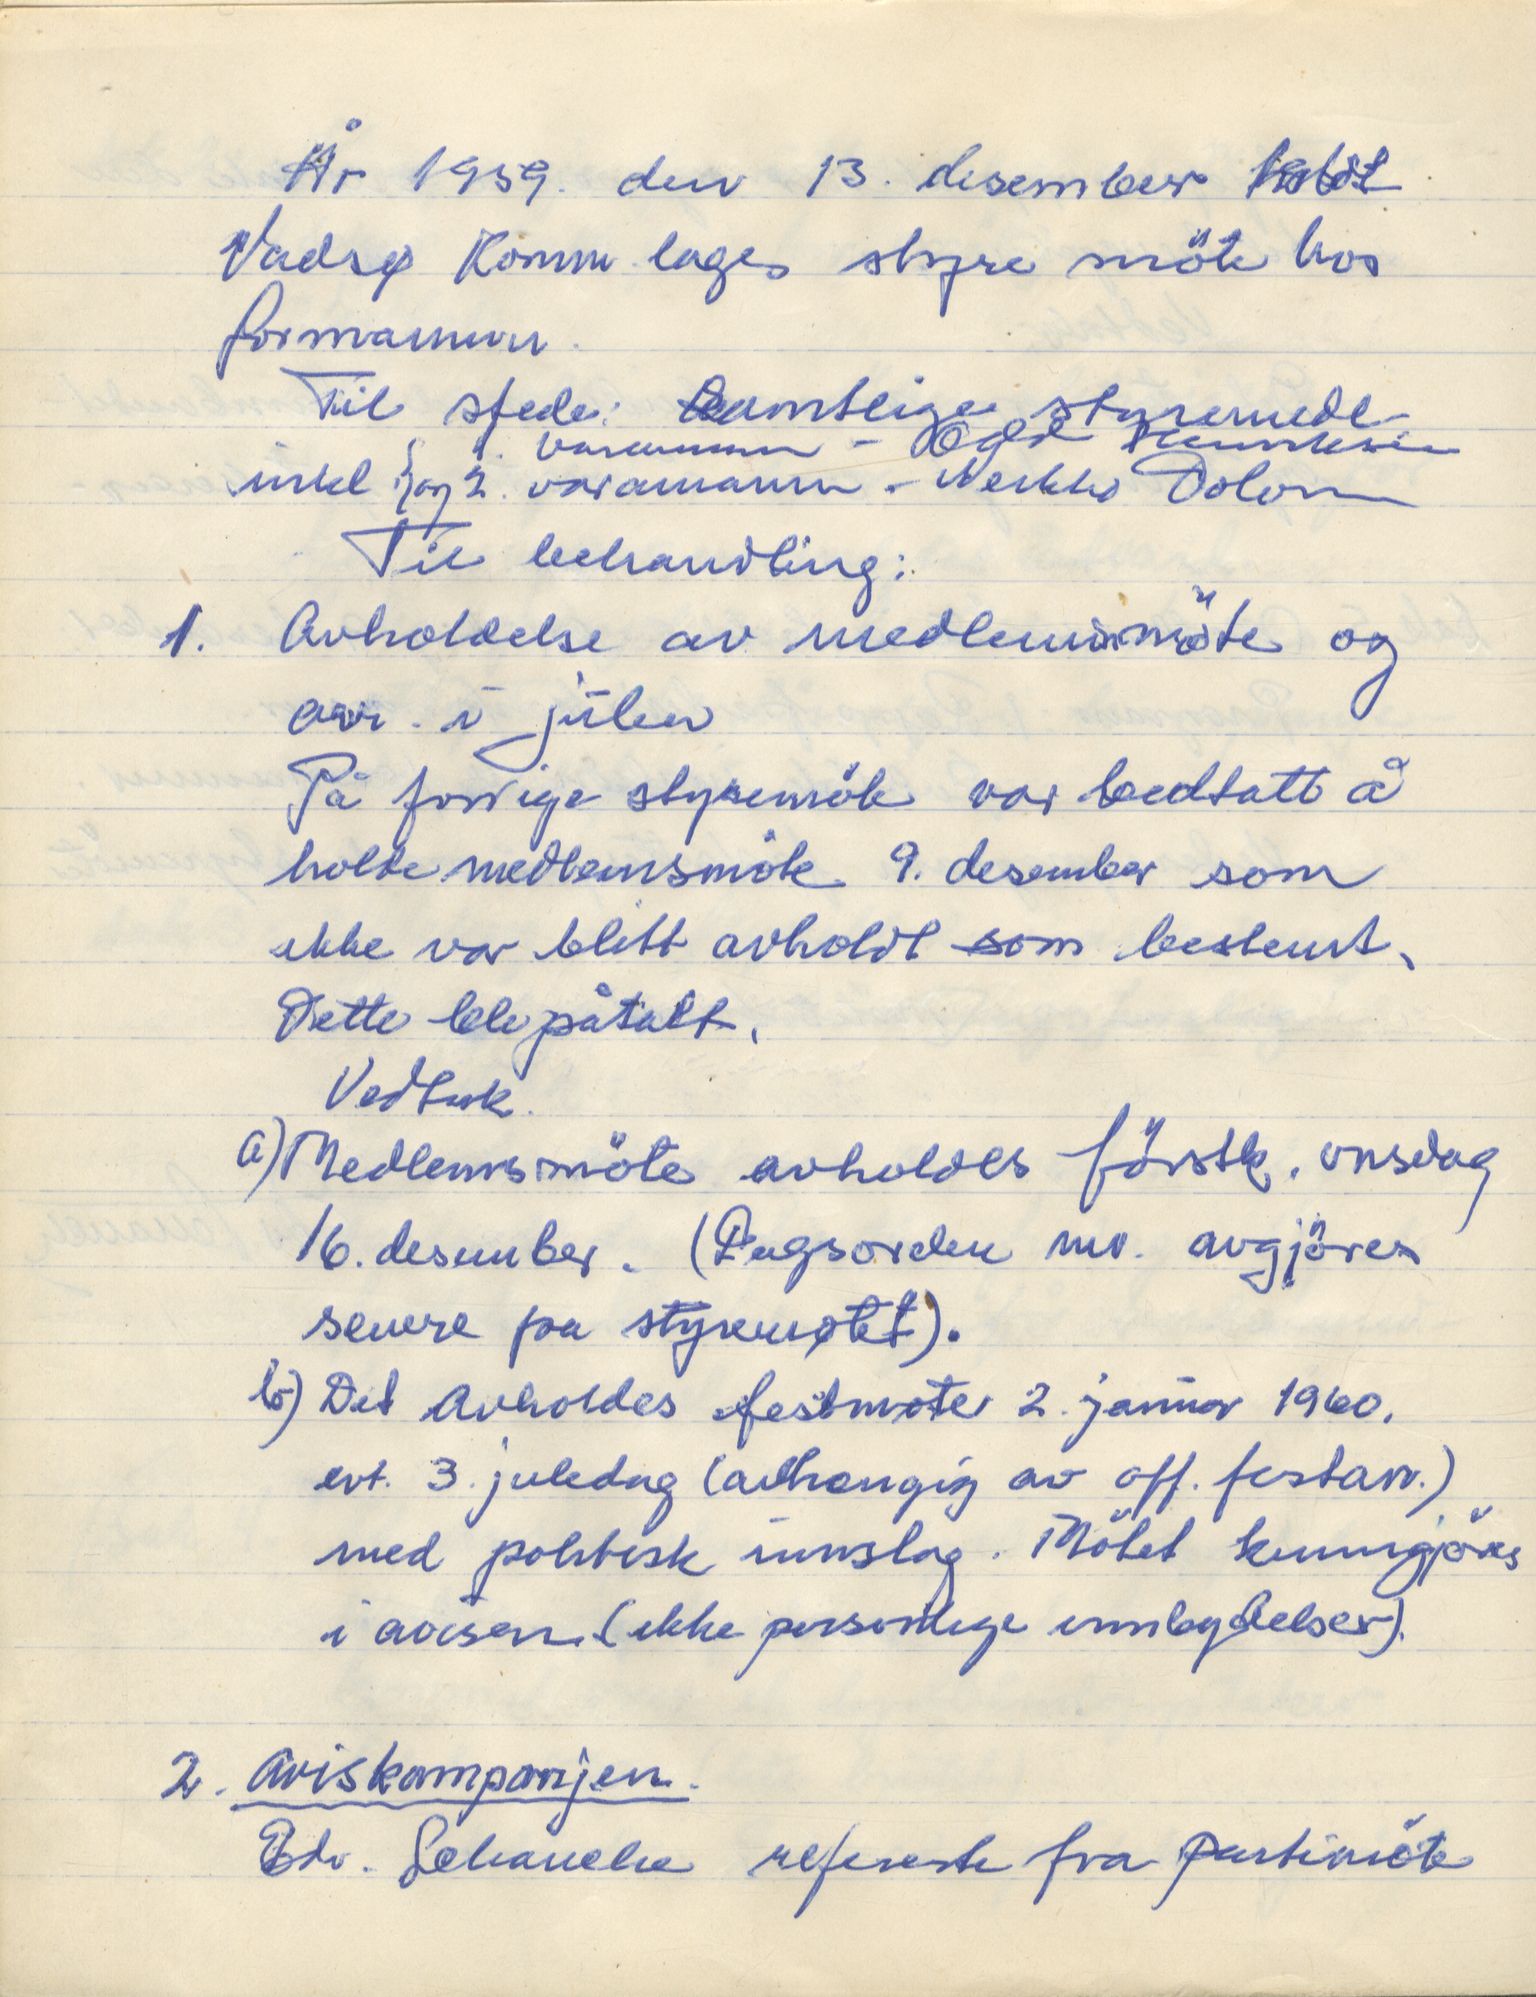 År 1959. den 13. desember holdt
Vadsø Komm. lages styre möte hos
formannen.
Til stede: Samtlige styremedl.
inkl { 1. varamann – Odd Henriksen
og 2. varamann. – Neikko Dolonen
Til behandling:
1. Avholdelse av medlemsmöte og
arr. i julen
På forrige styremöte var vedtatt å
holde medlemsmöte 9. desember som
ikke var blitt avholdt som bestemt.
Dette ble påtalt.
Vedtak.
a) Medlemsmöte avholdes förstk. onsdag
16. desember. (Dagsorden mv. avgjöres
senere på styremøtet).
b) Det avholdes festmøte 2. januar 1960.
evt. 3. juledag (avhengig av off. festarr.)
med politisk innslag. Mötet kunngjöres
i avisen. (ikke personlige innbydelser).
2. Aviskampanjen.
Edv. Schanche refererte fra partimöte